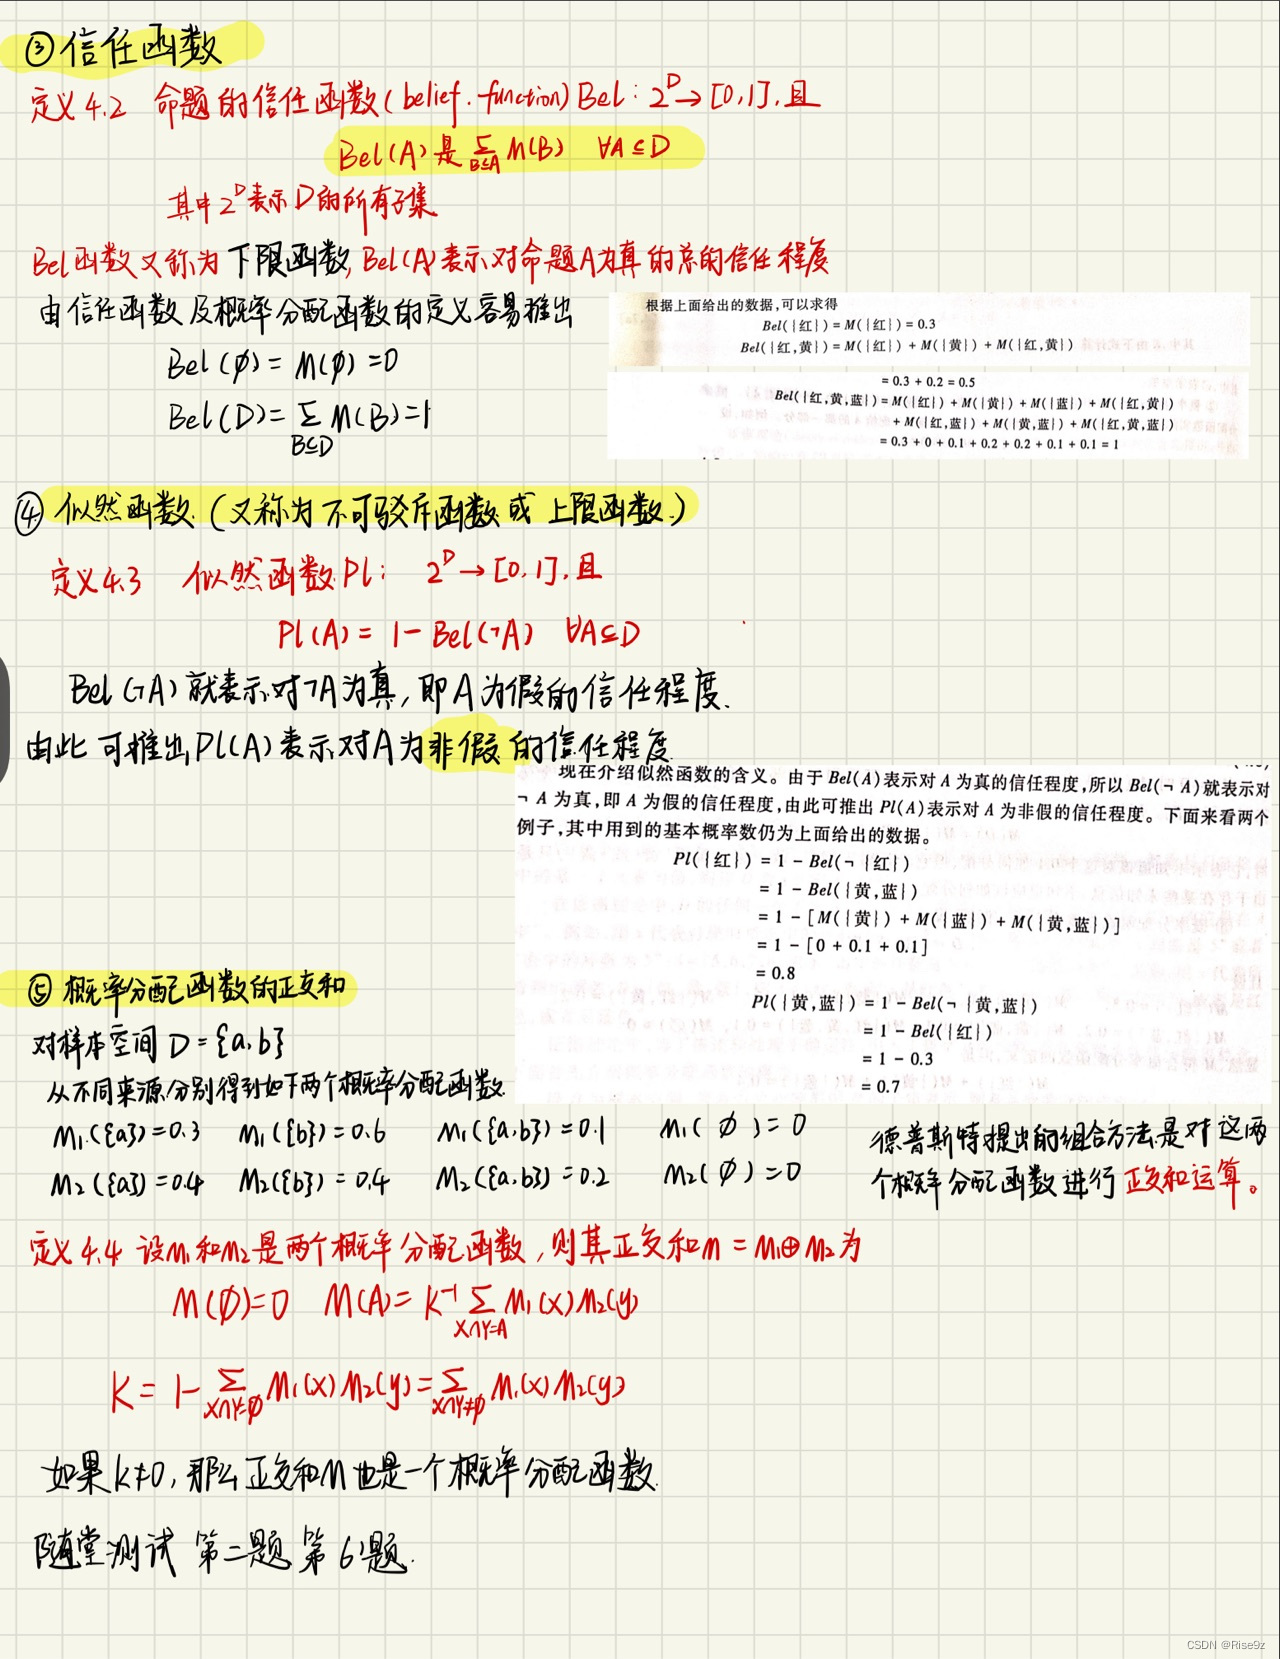 ③信任函数
定义4.2 命题的信任函数(belief function) Bel: 2^D→[0,1],且
Bel(A)是 Σ_{B⊆A} M(B) ∀A⊆D
其中2^D表示D的所有子集
Bel函数又称为下限函数,Bel(A)表示对命题A为真的总的信任程度
由信任函数及概率分配函数的定义容易推出
Bel(∅)= M(∅)=0
Bel(D)= Σ_{B⊆D} M(B)=1
根据上面给出的数据,可以求得
Bel({红}) = M({红}) = 0.3
Bel({红,黄}) = M({红}) + M({黄}) + M({红,黄})
= 0.3 + 0.2 = 0.5
Bel({红,黄,蓝}) = M({红}) + M({黄}) + M({蓝}) + M({红,黄})
+ M({红,蓝}) + M({黄,蓝}) + M({红,黄,蓝})
= 0.3 + 0 + 0.1 + 0.2 + 0.2 + 0.1 + 0.1 = 1
④似然函数.(又称为不可驳斥函数或上限函数.)
定义4.3 似然函数Pl: 2^D→[0,1],且
Pl(A)= 1-Bel(¬A) ∀A⊆D
Bel(¬A)就表示对¬A为真,即A为假的信任程度.
由此可推出Pl(A)表示对A为非假的信任程度.
现在介绍似然函数的含义。由于 Bel(A)表示对 A 为真的信任程度,所以 Bel(¬ A)就表示对
¬ A 为真,即 A 为假的信任程度,由此可推出 Pl(A)表示对 A 为非假的信任程度。下面来看两个
例子,其中用到的基本概率数仍为上面给出的数据。
Pl({红}) = 1 - Bel(¬ {红})
= 1 - Bel({黄,蓝})
= 1 - [M({黄}) + M({蓝}) + M({黄,蓝})]
= 1 - [0 + 0.1 + 0.1]
= 0.8
Pl({黄,蓝}) = 1 - Bel(¬ {黄,蓝})
= 1 - Bel({红})
= 1 - 0.3
= 0.7
⑤概率分配函数的正交和
对样本空间 D={a,b}
从不同来源分别得到如下两个概率分配函数
M₁({a})=0.3 M₁({b})=0.6 M₁({a,b})=0.1 M₁(∅)=0
M₂({a})=0.4 M₂({b})=0.4 M₂({a,b})=0.2 M₂(∅)=0
德普斯特提出的组合方法是对这两
个概率分配函数进行正交和运算。
定义4.4 设M₁和M₂是两个概率分配函数,则其正交和M=M₁⊕M₂为
M(∅)=0 M(A)= K⁻¹ Σ_{X∩Y=A} M₁(x)M₂(y)
K= 1- Σ_{X∩Y=∅} M₁(x)M₂(y)= Σ_{X∩Y≠∅} M₁(x)M₂(y)
如果K≠0,那么正交和M也是一个概率分配函数.
随堂测试 第二题 第6题.
CSDN @Rise9z